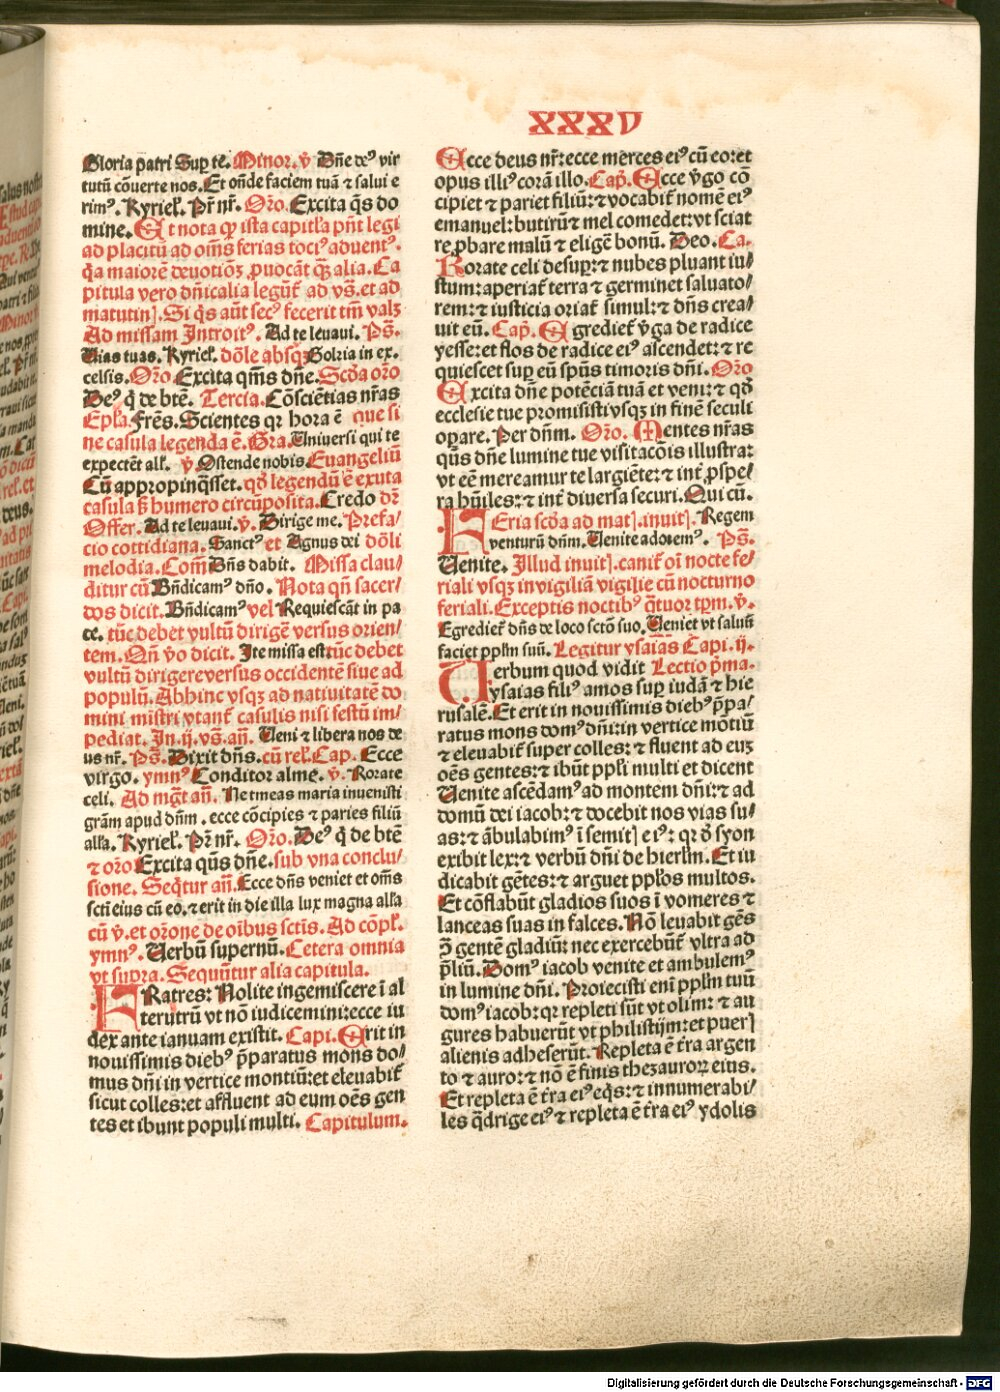 XXXV
Gloria patri Sup te. Minor. v̄ Dn̄e deꝰ vir
tutū cōuerte nos. Et onde faciem tuā ⁊ salui e
rimꝰ. Kyriel̄. Pr̄ nr̄. Or̄o. Excita q̄s do
mine. Et nota qꝫ ista capitl̄a pn̄t legi
ad placitū ad om̄s ferias tociꝰ aduentꝰ.
q̄a maiorē deuotiōꝫ ꝓuocāt qꝫ alia. Ca
pitula vero dn̄icalia legūt̄ ad vs̄. et ad
matutin]. Si q̄s aūt secꝰ fecerit tm̄ valꝫ
Ad missam Introitꝰ. Ad te leuaui. Ps̄.
Uias tuas. Kyriel̄. dōle absqꝫ Golria in ex.
celsis. Or̄o. Excita qm̄s dn̄e. Scd̄a or̄o
Deꝰ q̄ de btē. Tercia. Cōsciētias nr̄as
Epl̄a. Fr̄es. Scientes qr hora ē que si
ne casula legenda ē. Gr̄a. Uniuersi qui te
expectēt all̄. v̄ Ostende nobis. Euangeliū
Cū appropinq̄sset. qd̄ legendū ē exuta
casula sꝫ humero circūposita. Credo dr̄
Offer. Ad te leuaui. v̄. Dirige me. Prefa/
cio cottidiana. Sanctꝰ et Agnus dei dōli
melodia. Com̄ Dn̄s dabit. Missa clau/
ditur cū Bn̄dicamꝰ dn̄o. Nota qn̄ sacer/
dos dicit. Bn̄dicamꝰ vel Requiescāt in pa
ce. tūc debet vultū dirigē versus orien/
tem. Qn̄ v̄o dicit. Ite missa est tūc debet
vultū dirigere versus occidentē siue ad
populū. Abhinc vsqꝫ ad natiuitatē do
mini mīstri vtant̄ casulis nisi festū im/
pediat. In .ij. vs̄. an̄. Ueni ⁊ libera nos de
us nr̄. Ps̄. Dixit dn̄s. cū rel̄. Cap. Ecce
virgo. ymnꝰ Conditor alme. v̄. Rorate
celi. Ad mḡt an̄. Ne timeas maria inuenisti
grām apud dn̄m. ecce cōcipies ⁊ paries filiū
all̄a. Kyriel̄. Pr̄ nr̄. Or̄o. Deꝰ q̄ de btē
⁊ or̄o Excita qūs dn̄e. sub vna conclu/
sione. Seq̄tur an̄. Ecce dn̄s veniet et om̄s
sctī eius cū eo. ⁊ erit in die illa lux magna all̄a
cū v̄. et or̄one de oībus sctis. Ad cōpl̄.
ymnꝰ. Uerbū supernū. Cetera omnia
vt supra. Sequūtur alia capitula.
FRatres: Nolite ingemiscere ī al
terutrū vt nō iudicemini: ecce iu
dex ante ianuam existit. Capi. Erit in
nouissimis diebꝰ p̄paratus mons do/
mus dn̄i in vertice montiū: et eleuabit̄
sicut colles: et affluent ad eum oēs gen
tes et ibunt populi multi. Capitulum.
Ecce deus nr̄: ecce merces eiꝰ cū eo: et
opus illiꝰ corā illo. Cap̄. Ecce v̄go cō
cipiet ⁊ pariet filiū: ⁊ vocabit̄ nomē eiꝰ
emanuel: butirū ⁊ mel comedet: vt sciat
re ꝓbare malū ⁊ eligē bonū. Deo. Ca.
Rorate celi desuꝑ: ⁊ nubes pluant iu/
stum: aperiat̄ terra ⁊ germinet saluato/
rem: ⁊ iusticia oriat̄ simul: ⁊ dn̄s crea/
uit eū. Cap̄. Egrediet̄ v̄ga de radice
yesse: et flos de radice eiꝰ ascendet: ⁊ re
quiescet sup eū spūs timoris dn̄i. Or̄o
Excita dn̄e potēciā tuā et veni: ⁊ qd̄
ecclesie tue promisisti vsqꝫ in finē seculi
opare. Per dn̄m. Or̄o. Mentes nr̄as
qūs dn̄e lumine tue visitacōis illustra:
vt eē mereamur te largiēte: ⁊ int̄ ꝓspe/
ra hūiles: ⁊ int̄ diuersa securi. Qui cū.
FEria scd̄a ad mat]. inuit]. Regem
venturū dn̄m. Uenite adoremꝰ. Ps̄.
Uenite. Illud inuit]. canit̄ oī nocte fe/
riali vsqꝫ in vigiliā vigilie cū nocturno
feriali. Exceptis noctibꝰ q̄tuor tpm. v̄.
Egrediet̄ dn̄s de loco sctō suo. Ueniet vt saluū
faciet pplm suū. Legitur ysaias Capi. ij.
Uerbum quod vidit Lectio p̄ma.
ysaias filiꝰ amos suꝑ iudā ⁊ hie
rusalē. Et erit in nouissimis diebꝰ p̄pa/
ratus mons domꝰ dn̄i: in vertice motiū
⁊ eleuabit̄ super colles: ⁊ fluent ad euꝫ
oēs gentes: ⁊ ibūt ppl̄i multi et dicent
Uenite ascēdamꝰ ad montem dn̄i: ⁊ ad
domū dei iacob: ⁊ docebit nos vias su/
as: ⁊ ābulabimꝰ ī semit] eiꝰ: qr d̄ syon
exibit lex: ⁊ verbū dn̄i de hierl̄m. Et iu
dicabit gētes: ⁊ arguet ppl̄os multos.
Et cōflabūt gladios suos ī vomeres ⁊
lanceas suas in falces. Nō leuabit gēs
ↄ̄ gentē gladiū: nec exercebūt̄ vltra ad
p̄liū. Domꝰ iacob venite et ambulemꝰ
in lumine dn̄i. Proiecisti enī pplm tuū
domꝰ iacob: qr repleti sūt vt olim: ⁊ au
gures habuerūt vt philistijm: et puer]
alienis adheserūt. Repleta ē tr̄a argen
to ⁊ auro: ⁊ nō ē finis thezauroꝝ eius.
Et repleta ē tr̄a eiꝰ eq̄s: ⁊ innumerabi/
les q̄drige eiꝰ ⁊ repleta ē tr̄a eiꝰ ydolis
Digitalisierung gefördert durch die Deutsche Forschungsgemeinschaft - DFG